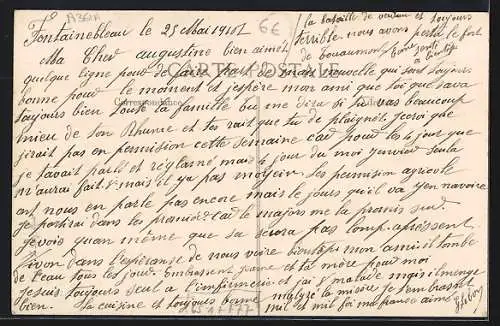 A362A
6€
Fontainebleau le 25 Mai 1916
Ma Cher augustine bien aimét
quelque ligne pour te faire de mon nouvelle qui sont toujours
bonne pour le moment et j'espère mon ami que toi que sava
toujours bien toute la famille tu me dira si tu vas beaucoup
mieu de ton Rhume et tes rait que tu de plaignét je croi que
j'irait pas en permission cette semaine car pour les 4 jour que
je tavait parlé et réglamé mais 4 jour du moi j'envoid seula
m'aurai fait 8 mais il ya pas moyein. les permission agricole
ont nous en parle pas encore mais le jours qu'el va yen navoire
je partirai dans les premier car le majors me la promis sur.
je vois quan même que sa sera pas long. apressent
vivon dans l'espérance de nous voire bientôt mon ami il tombe
de l'eau tous les jour. Embrasent jeanne et ta mère pour moi
je suis toujours seul a l'enfirmerie et j'ai 5 malade mais il menge
bien. la cuizine et toujours bonne malgré la misère je t'embrassét
mil et mil foi ma pauvre aimé
la bataille de verdun et toujours
terrible. nous avons perdu le fort
de Douaumont.
CARTE POSTALE
Correspondance